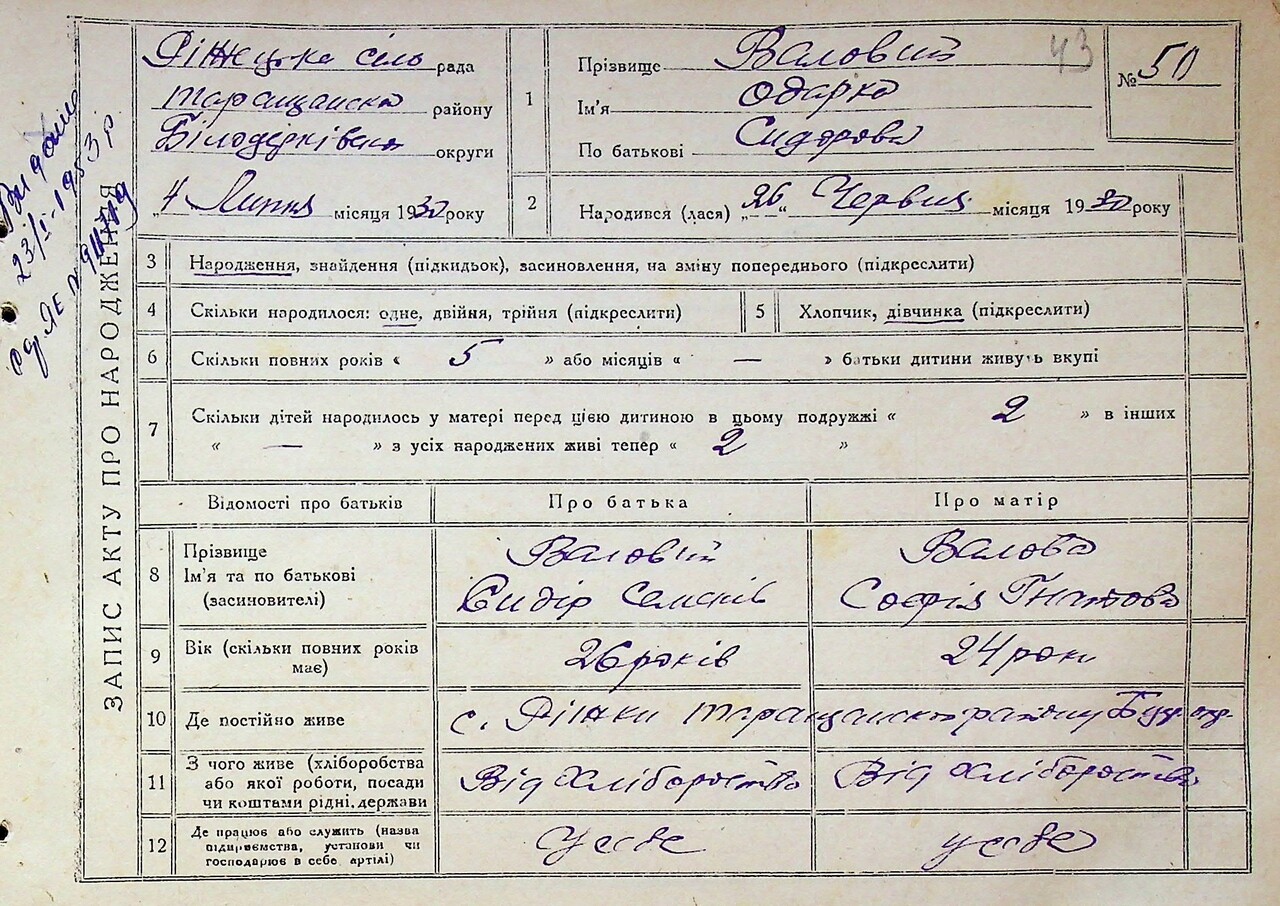 сіль рада
Таращанська району
Білоцерківська округи
4 Липня місяця 1930 року
1
Прізвище Валовий
Ім'я Одарка
По батькові Сидорова
43
№ 50
2
Народився (лася) „26“ Червня місяця 1930 року
23/I-1953 р.
ЗАПИС АКТУ ПРО НАРОДЖЕННЯ
3 Народження, знайдення (підкидьок), засиновлення, на зміну попереднього (підкреслити)
4 Скільки народилося: одне, двійня, трійня (підкреслити)
5 Хлопчик, дівчинка (підкреслити)
6 Скільки повних років « 5 » або місяців « — » батьки дитини живуть вкупі
7 Скільки дітей народилось у матері перед цією дитиною в цьому подружжі « 2 » в інших
« — » з усіх народжених живі тепер « 2 »
Відомості про батьків
Про батька
Про матір
8
Прізвище
Ім'я та по батькові
(засиновителі)
Валовий
Сидір Семенів
Валова
Софія Гнатова
9
Вік (скільки повних років
має)
26 років
24 роки
10
Де постійно живе
с. Таращанського району
11
З чого живе (хліборобства
або якої роботи, посади
чи коштами рідні, держави
Від хліборобства
Від хліборобства
12
Де працює або служить (назва
підприємства, установи чи
господарює в себе артілі)
у себе
у себе